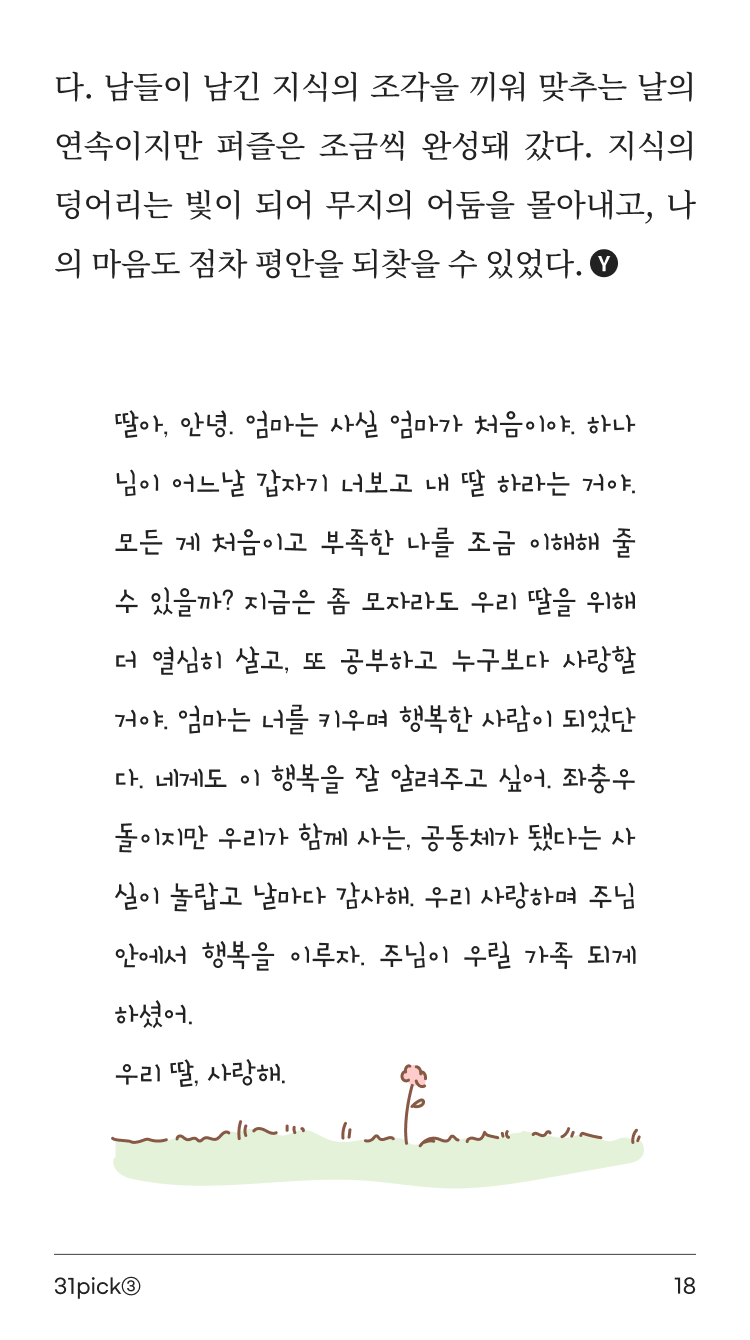 다. 남들이 남긴 지식의 조각을 끼워 맞추는 날의
연속이지만 퍼즐은 조금씩 완성돼 갔다. 지식의
덩어리는 빛이 되어 무지의 어둠을 몰아내고, 나
의 마음도 점차 평안을 되찾을 수 있었다. Y
딸아, 안녕. 엄마는 사실 엄마가 처음이야. 하나
님이 어느날 갑자기 너보고 내 딸 하라는 거야.
모든 게 처음이고 부족한 나를 조금 이해해 줄
수 있을까? 지금은 좀 모자라도 우리 딸을 위해
더 열심히 살고, 또 공부하고 누구보다 사랑할
거야. 엄마는 너를 키우며 행복한 사람이 되었단
다. 네게도 이 행복을 잘 알려주고 싶어. 좌충우
돌이지만 우리가 함께 사는, 공동체가 됐다는 사
실이 놀랍고 날마다 감사해. 우리 사랑하며 주님
안에서 행복을 이루자. 주님이 우릴 가족 되게
하셨어.
우리 딸, 사랑해.
31pick③ 18